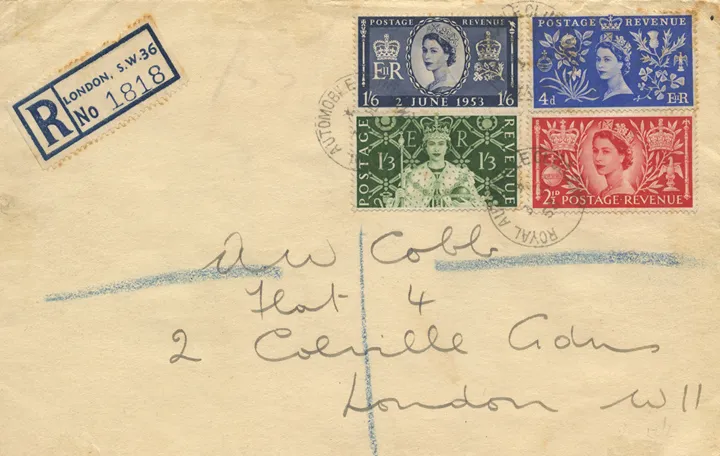 LONDON, S.W.36
R No 1818
POSTAGE REVENUE
E II R
1/6 2 JUNE 1953 1/6
POSTAGE REVENUE
4d E II R
POSTAGE
E R
1/3 1/3
REVENUE
2½D POSTAGE·REVENUE
ROYAL AUTOMOBILE
ROYAL
A W Cobb
Flat 4
2 Colville Gdns
London W11